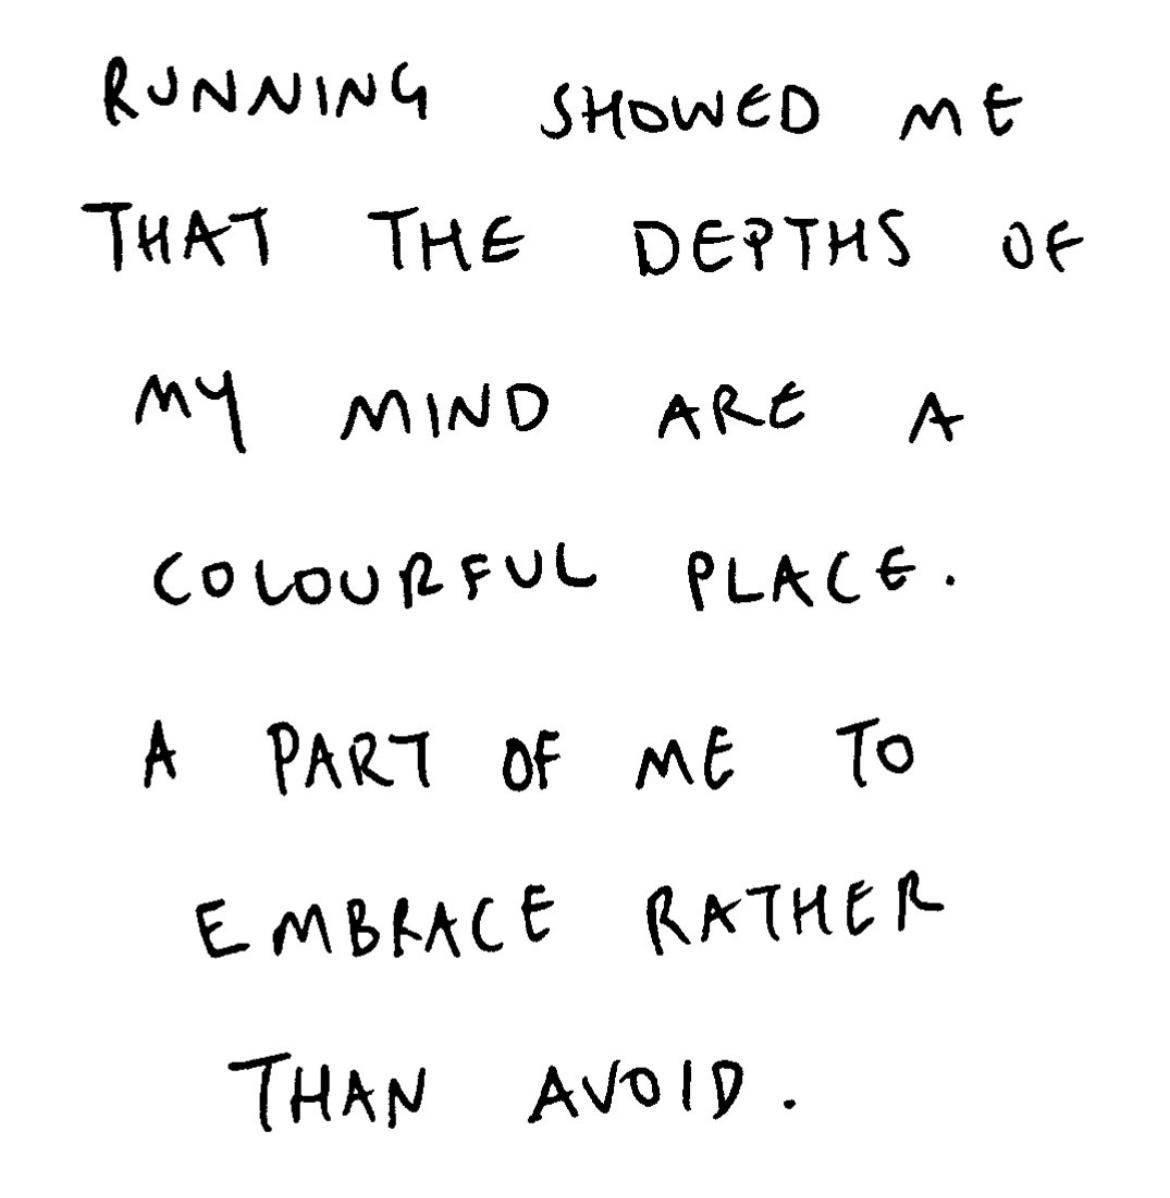 RUNNING SHOWED ME
THAT THE DEPTHS OF
MY MIND ARE A
COLOURFUL PLACE.
A PART OF ME TO
EMBRACE RATHER
THAN AVOID.